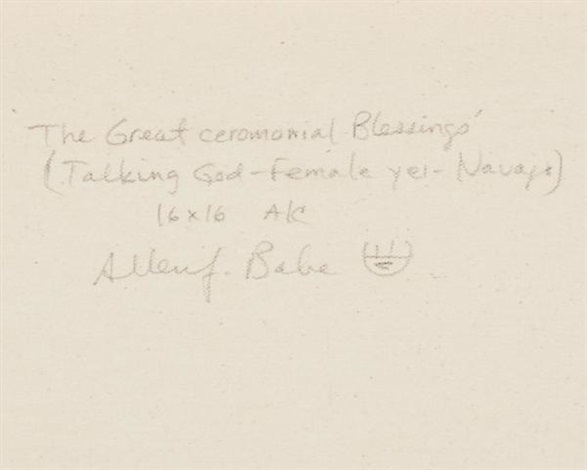 'The Great ceromonial Blessings'
(Talking God-Female yei-Navajo)
16x16 A/C
Allen J. Bahe